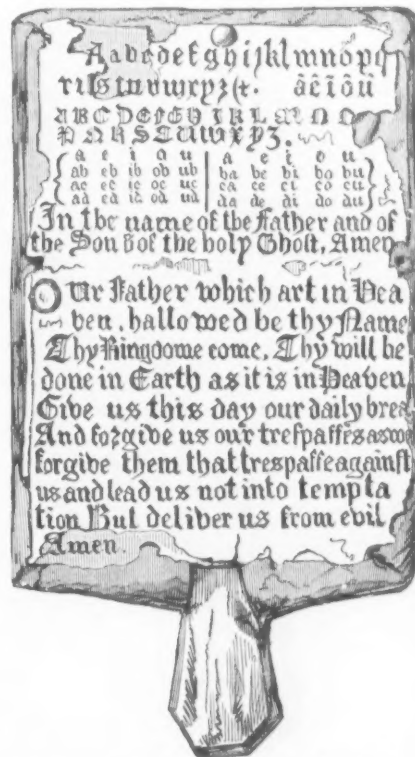 Aabcdefghijklmnopq
rꝛſstuvwxyz&. ãẽĩõũ
ABCDEFGHIKLMNO
PQRSTUWXYZ.
a e i o u | a e i o u
ab eb ib ob ub | ba be bi bo bu
ac ec ic oc uc | ca ce ci co cu
ad ed id od ud | da de di do du
In the name of the Father and of
the Son & of the holy Ghoſt, Amen
Our Father which art in Hea
ven, hallowed be thy Name
Thy Kingdome come, Thy will be
done in Earth as it is in Heaven
Give us this day our daily brea
And forgive us our treſpaſſes as we
forgive them that treſpaſſe againſt
us and lead us not into tempta
tion But deliver us from evil
Amen.